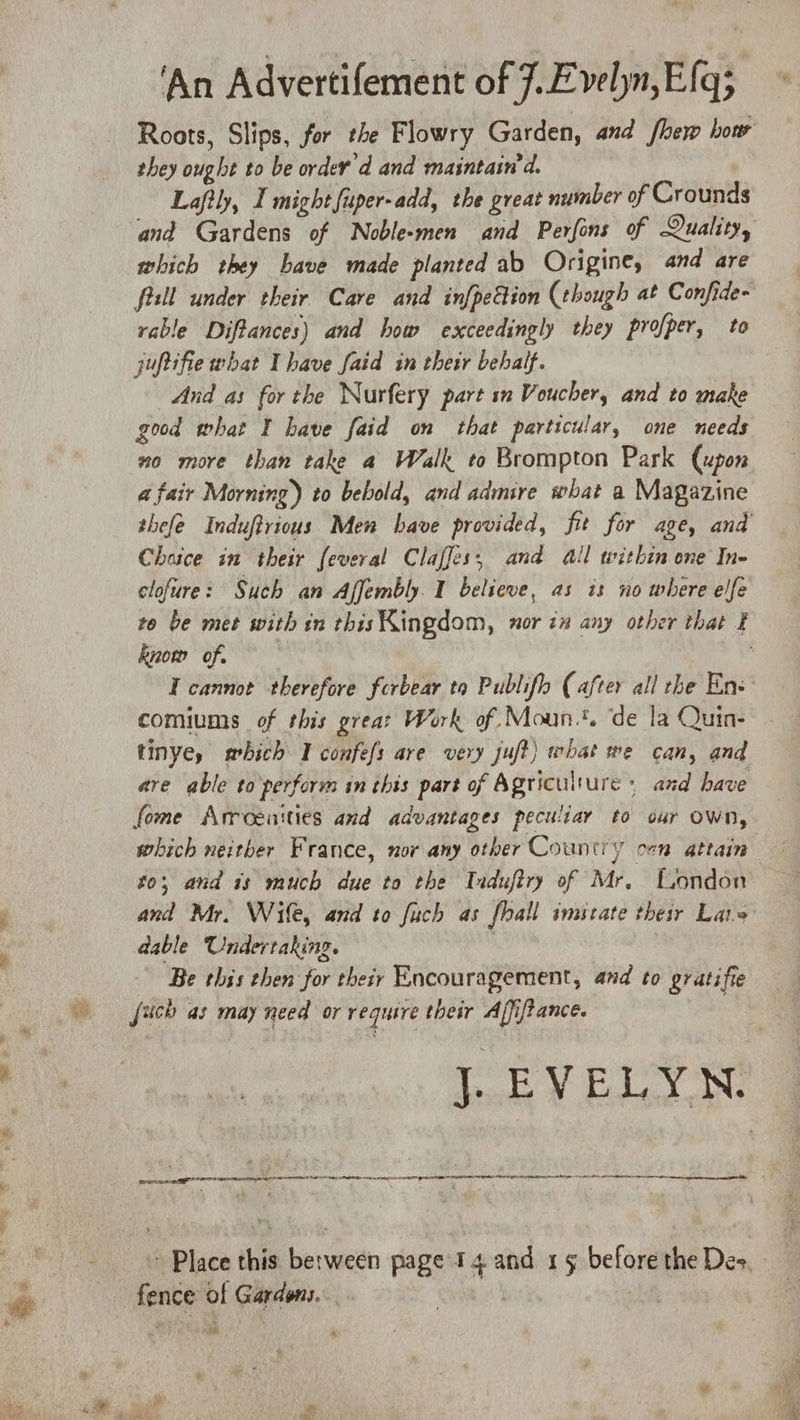 An Advertiſement of J. Evelyn, Eſq;
Roots, Slips, for the Flowry Garden, and ſhew how
they ought to be order'd and maintain'd.
Laſtly, I might ſuper-add, the great number of Crounds
and Gardens of Noble-men and Perſons of Quality,
which they have made planted ab Origine, and are
ſtill under their Care and inſpection (though at Conſide-
rable Diſtances) and how exceedingly they proſper, to
juſtifie what I have ſaid in their behalf.
And as for the Nurſery part in Voucher, and to make
good what I have ſaid on that particular, one needs
no more than take a Walk to Brompton Park (upon
a fair Morning) to behold, and admire what a Magazine
theſe Induſtrious Men have provided, fit for age, and
Choice in their ſeveral Claſſes; and all within one In-
cloſure: Such an Aſſembly I believe, as is no where elſe
to be met with in this Kingdom, nor in any other that I
know of.
I cannot therefore forbear to Publiſh (after all the En-
comiums of this great Work of Moun.ſ. de la Quin-
tinye, which I confeſs are very juſt) what we can, and
are able to perform in this part of Agriculture; and have
ſome Amœnities and advantages peculiar to our own,
which neither France, nor any other Country can attain
to; and is much due to the Induſtry of Mr. London
and Mr. Wiſe, and to ſuch as ſhall imitate their Lau-
dable Undertaking.
Be this then for their Encouragement, and to gratifie
ſuch as may need or require their Aſſiſtance.
J. EVELYN.
Place this between page 14 and 15 before the De-
fence of Gardens.